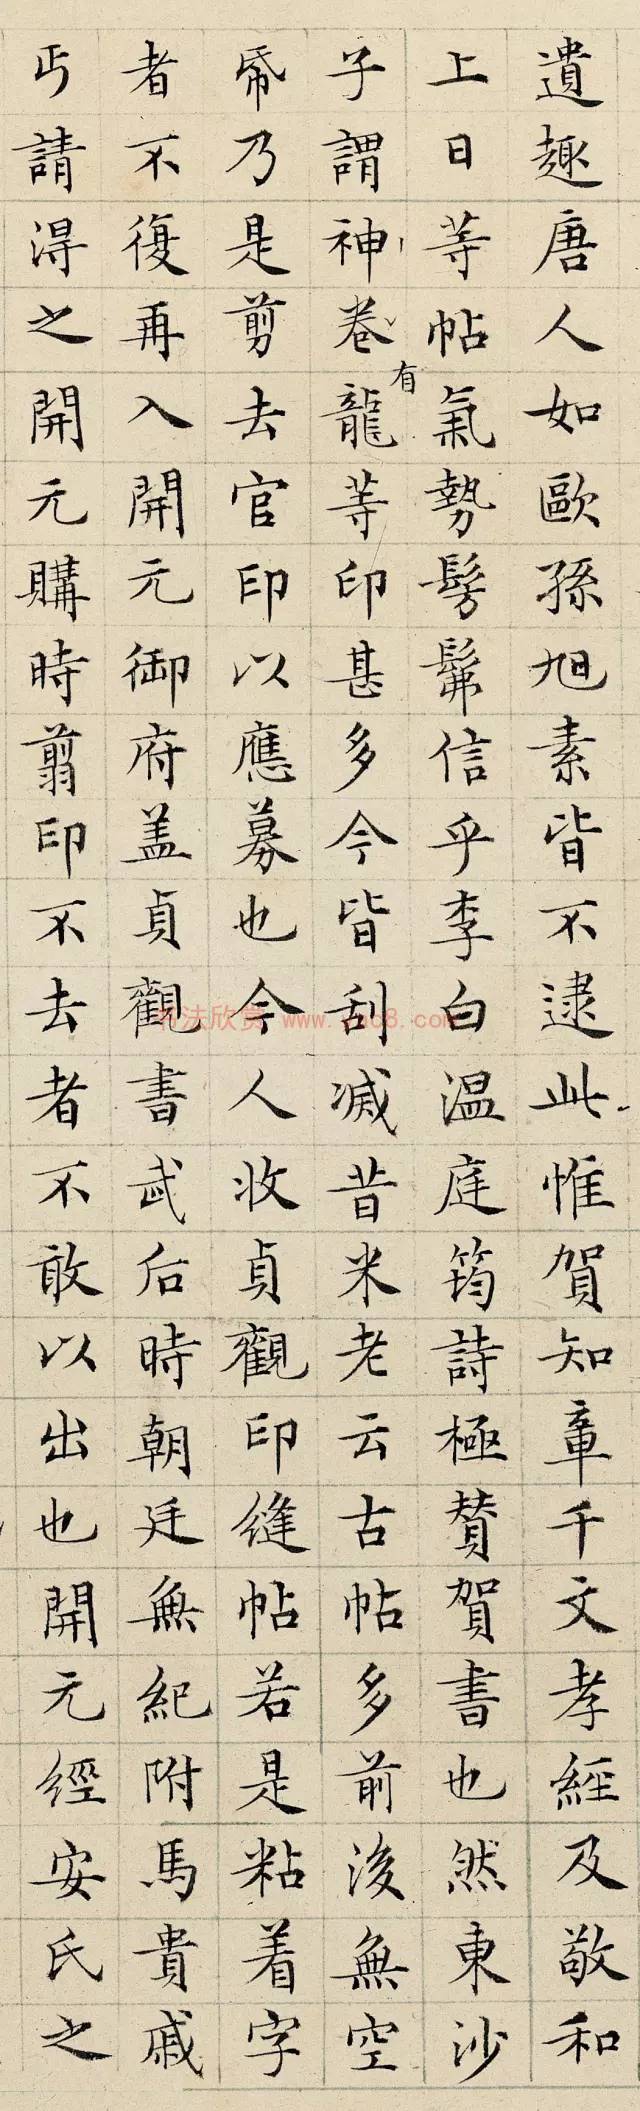 遺趣唐人如歐孫旭素皆不逮此惟賀知章千文孝經及敬和
上日等帖氣勢髣髴信乎李白温庭筠詩極賛賀書也然東沙
子謂神卷有龍等印甚多今皆刮滅昔米老云古帖多前後無空
帋乃是剪去官印以應募也今人收貞觀印縫帖若是粘着字
者不復再入開元御府盖貞觀書武后時朝廷無紀附馬貴戚
丐請淂之開元購時翦印不去者不敢以出也開元經安氏之
书法欣赏